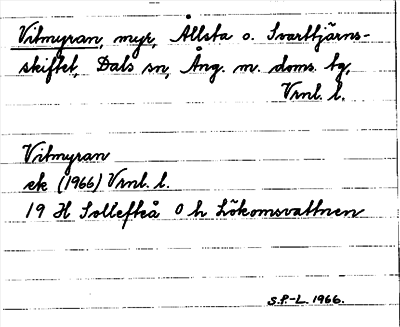 Vitmyran, myr, Ållsta o. Svarttjärns-
skiftet, Dals sn, Ång. m. doms. tg,
Vrnl. l.
Vitmyran
ek (1966) Vrnl. l.
19 H Sollefteå 0 h Lökomsvattnen
S.P.-L. 1966.